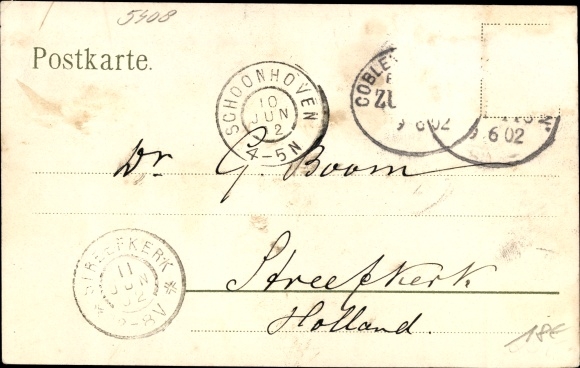 5408
Postkarte.
SCHOONHOVEN
10
JUN
2
4-5N
COBLE
ZU
9 6 02
9 6 02
Dr. G. Boom
STREEFKERK
11
JUN
2
-8V
Streefkerk
Holland.
18€